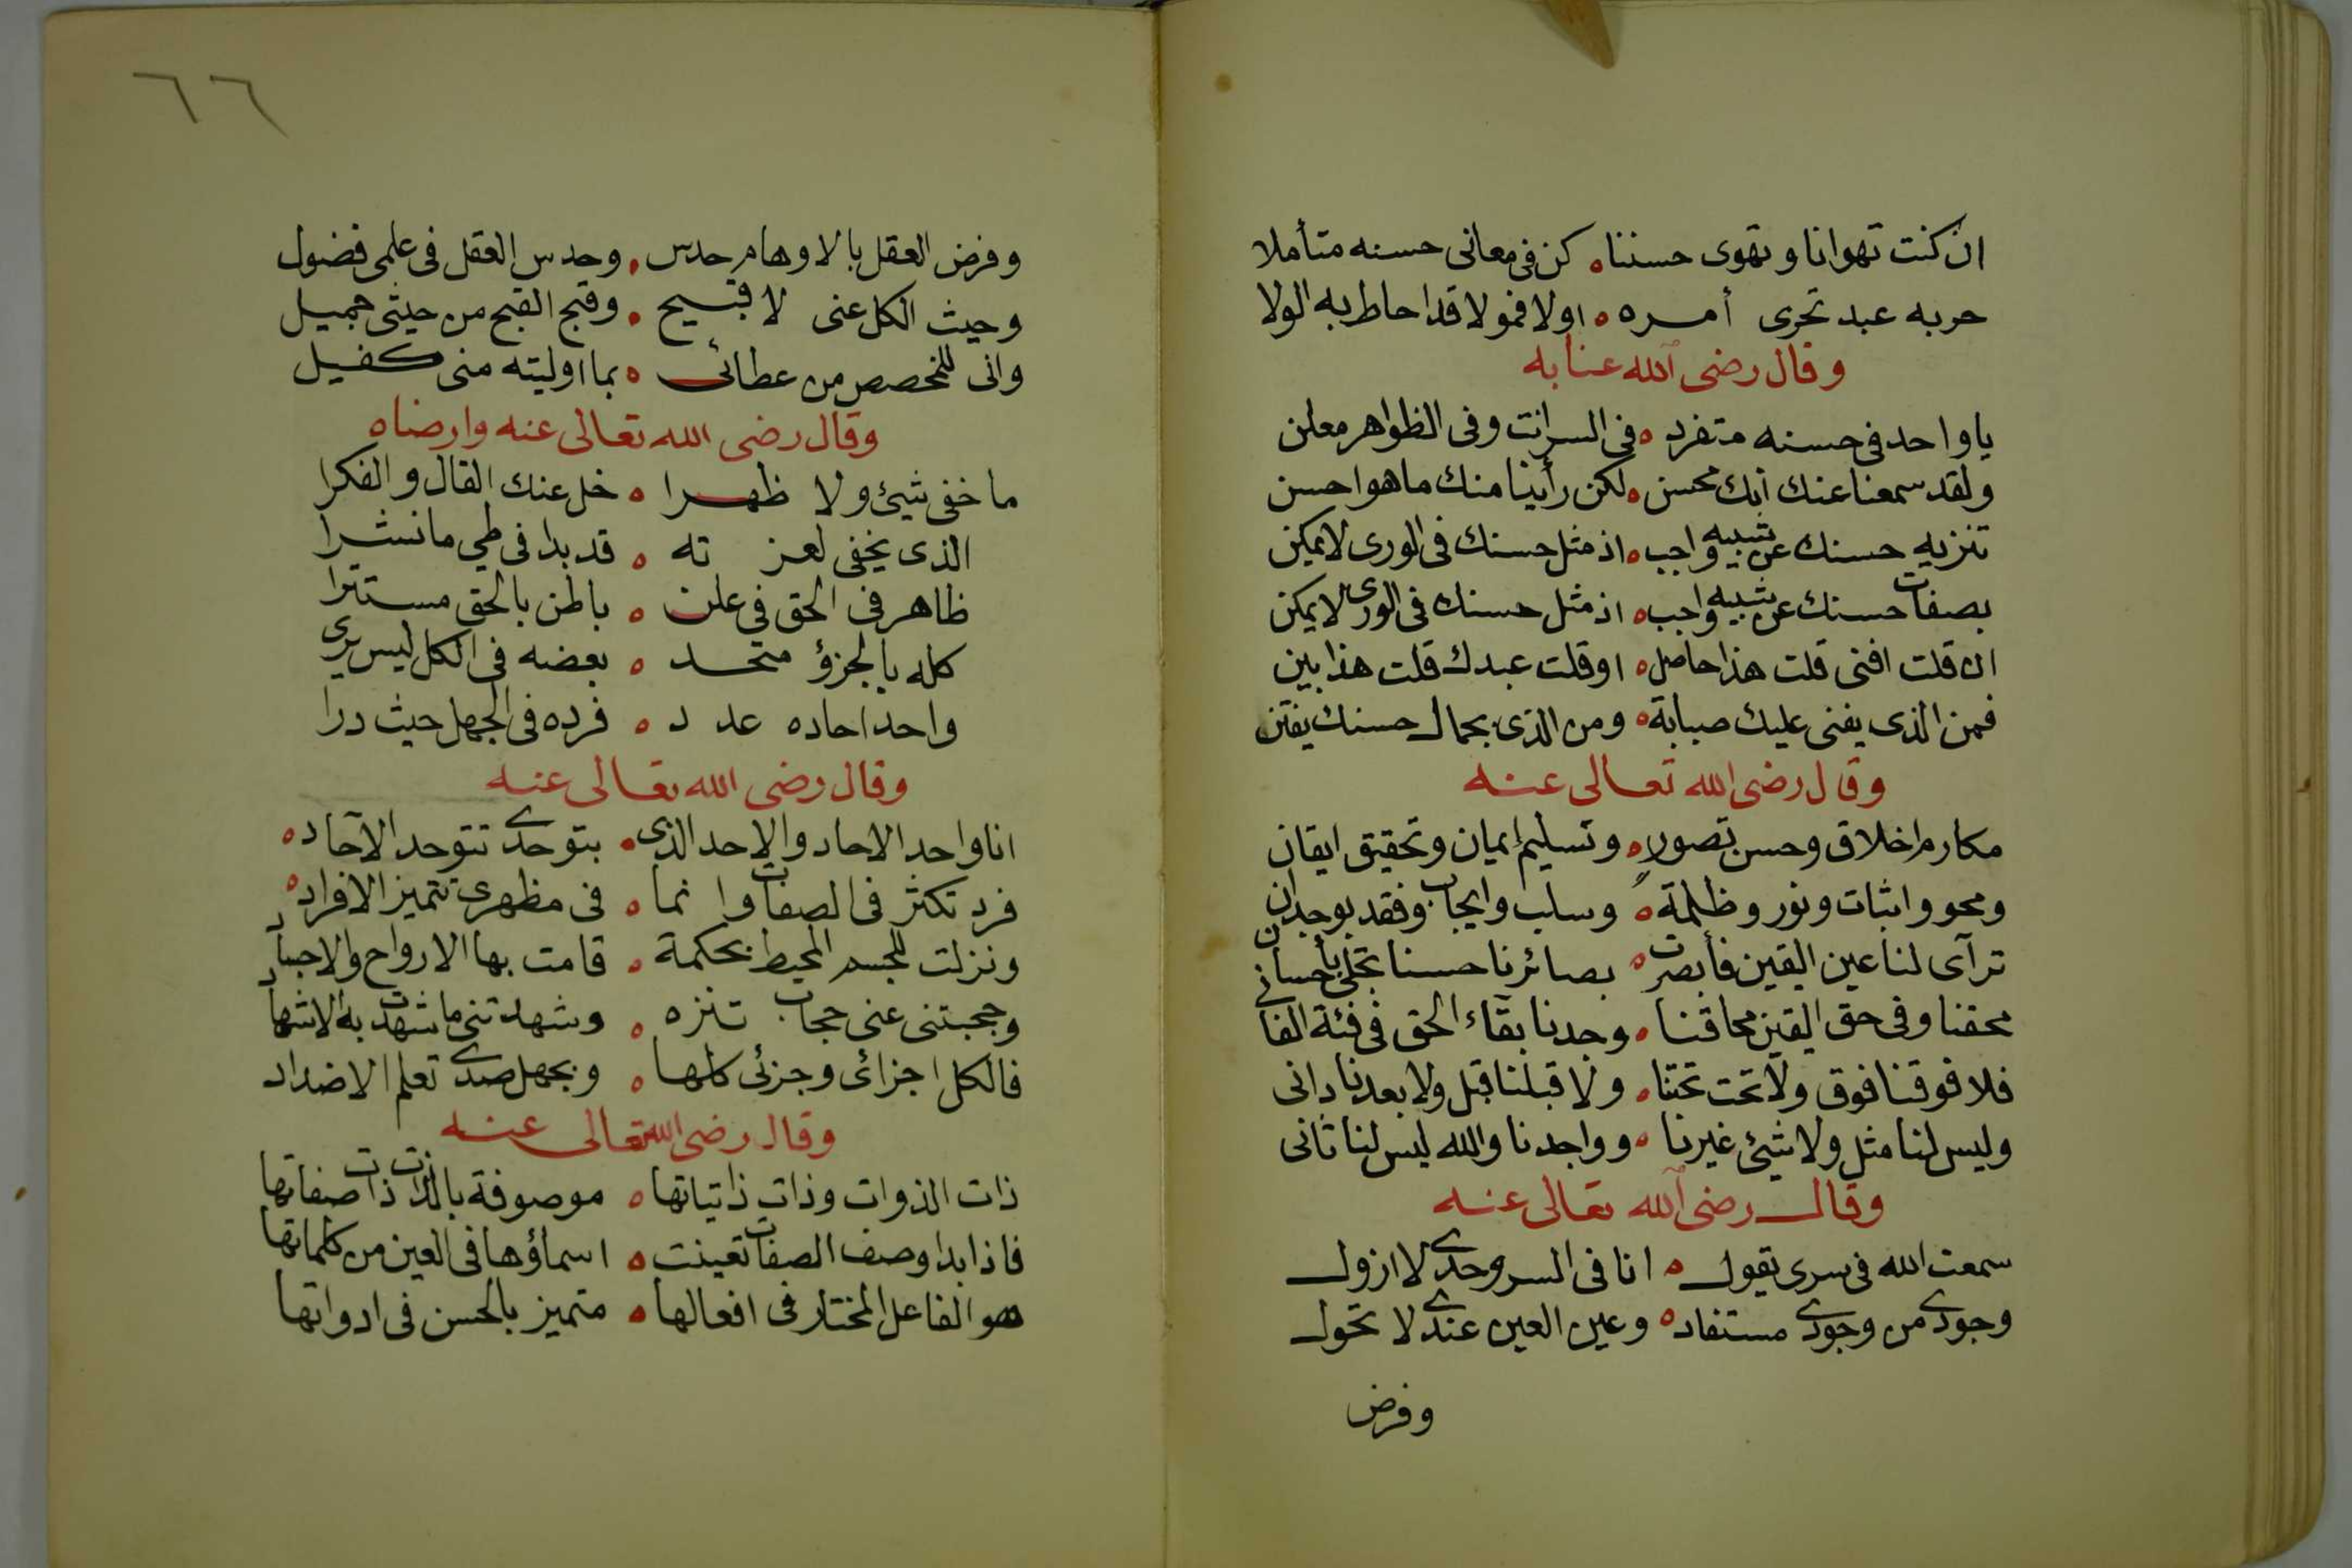 ان كنت تهوانا وتهوى حسننا ه كن فى معانى حسنه متأملا
حربه عبد تحرى أمره ه اولا فمولا قد احاط به الولا
وقال رضى الله عنا به
يا واحد فى حسنه متفرد ه فى السر انت وفى الظواهر معلن
ولقد سمعنا عنك انك محسن ه لكن رأينا منك ما هو احسن
تنزيه حسنك عن شبيه واجب ه اذ مثل حسنك فى الورى لا يمكن
بصفات حسنك عن شبيه واجب ه اذ مثل حسنك فى الورى لا يمكن
ان قلت افنى قلت هذا حاصل ه او قلت عبدك قلت هذا بين
فمن الذى يفنى عليك صبابة ه ومن الذى بجمال حسنك يفتن
وقال رضى الله تعالى عنه
مكارم اخلاق وحسن تصور ه وتسليم إيمان وتحقيق ايقان
ومحو واثبات ونور وظلمة ه وسلب وايجاب وفقد بوجدان
ترآى لنا عين اليقين فأبصرت ه بصائرنا حسنا تجلى بأحسان
محقنا وفى حق اليقين محاقنا ه وجدنا بقاء الحق فى فئة الفانى
فلا فوقنا فوق ولا تحت تحتنا ه ولا قبلنا قبل ولا بعدنا دانى
وليس لنا مثل ولا شيئ غيرنا ه وواجدنا والله ليس لنا ثانى
وقال رضى الله تعالى عنه
سمعت الله فى سرى يقول ه انا فى السر وحدى لا ازول
وجودى من وجودى مستفاد ه وعين العين عندى لا تحول
وفرض
٦٦
وفرض العقل بالاوهام حدس ه وحدس العقل فى علمى فضول
وحيث الكل عنى لا قبيح ه وقبح القبح من حيثى جميل
وانى للمخصص من عطائى ه بما اوليته منى كفيل
وقال رضى الله تعالى عنه وارضاه
ما خفى شيئ ولا ظهرا ه خل عنك القال والفكرا
الذى يخفى لعزته ه قد بدا فى طي ما نشرا
ظاهر فى الحق فى علن ه باطن بالحق مستترا
كله بالجزؤ متحد ه بعضه فى الكل ليس يرى
واحد احاده عدد ه فرده فى الجهل حيث درا
وقال رضى الله تعالى عنه
انا واحد الاحاد والاحد الذى ه بتوحدى تتوحد الآحاد ه
فرد تكثر فى الصفات وانما ه فى مظهرى تتميز الافراد ه
ونزلت للجسم المحيط بحكمة ه قامت بها الارواح والاجساد
وحجبتنى عنى حجاب تنزه ه وشهدتنى ما شهدت به الاشهاد
فالكل اجزائى وجزئى كلها ه وبجهل ضدى تعلم الاضداد
وقال رضى الله تعالى عنه
ذات الذوات وذات ذاتياتها ه موصوفة بالذات ذات صفاتها
فاذا بدا وصف الصفات تعينت ه اسماؤها فى العين من كلماتها
هو الفاعل المختار فى افعالها ه متميز بالحسن فى ادواتها